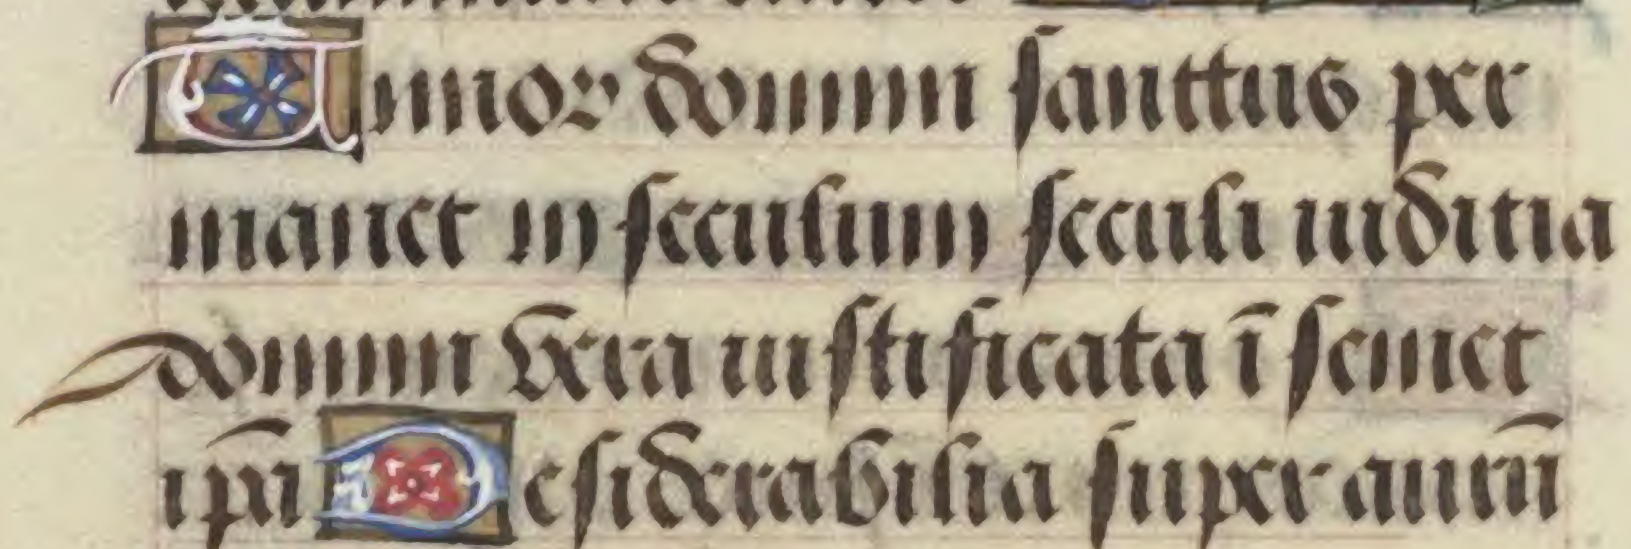 Timor domini sanctus per
manet in seculum seculi iuditia
domini vera iustificata ī semet
ip̄a Desiderabilia super aurū